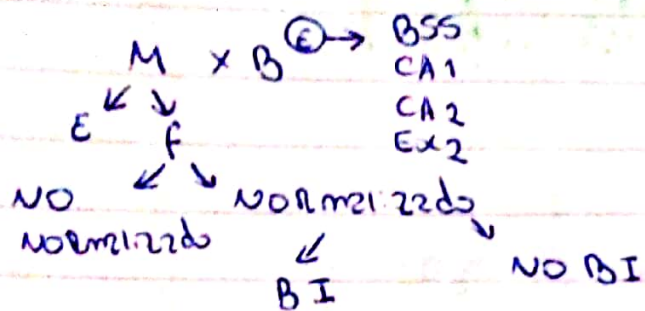 M x B^(E) → BSS
CA1
CA2
Ex2
E F
NO NORmalizado
NORmalizado
BI NO BI